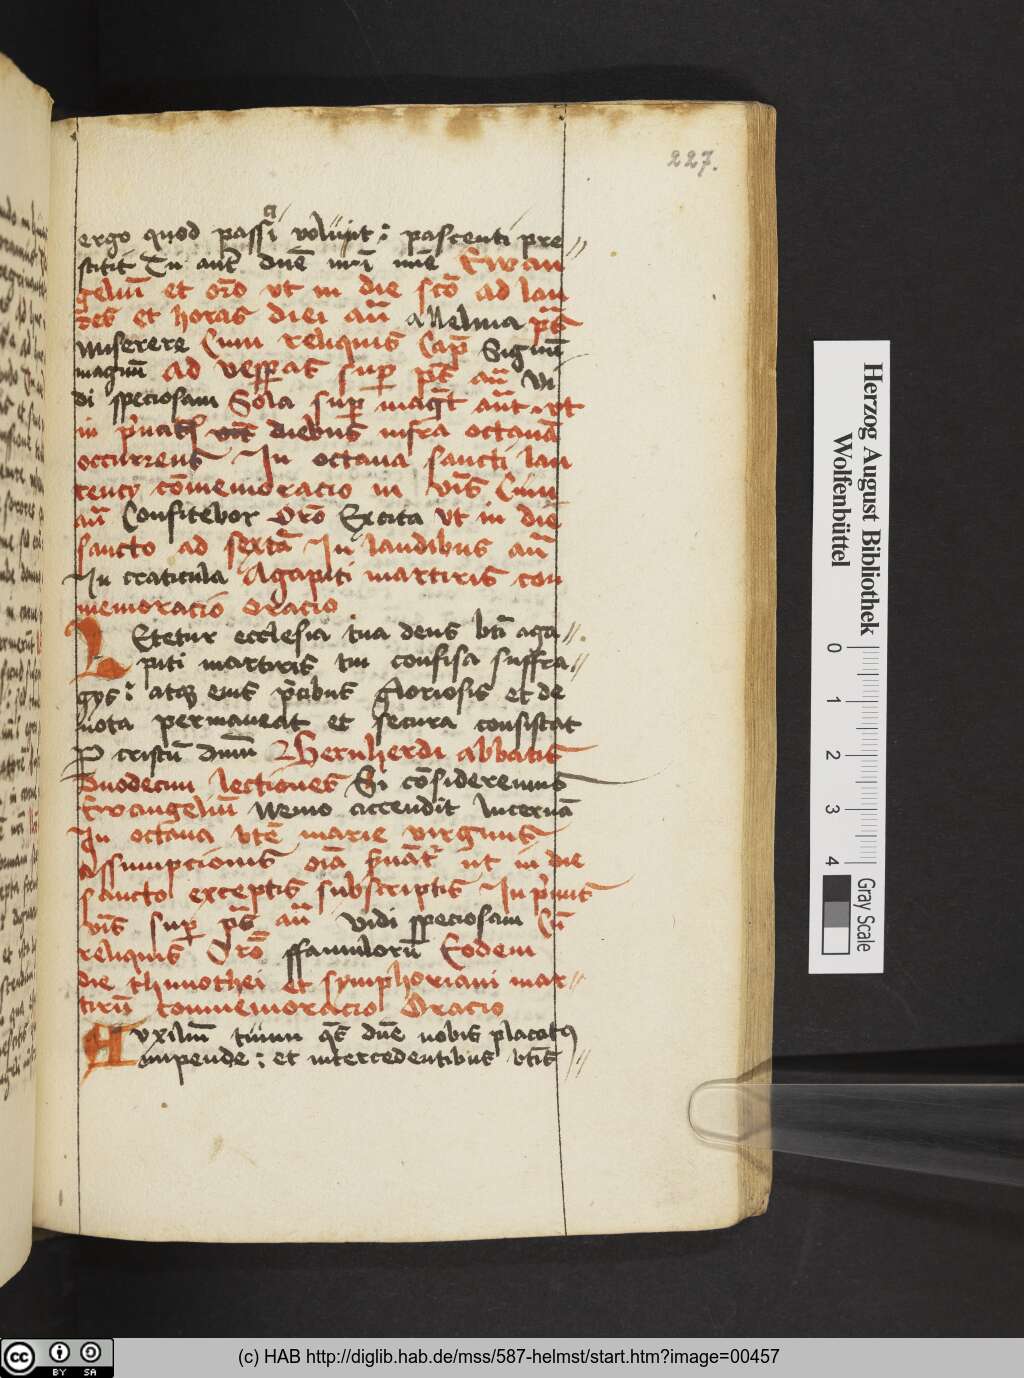 227.
ergo quod passi voluit : pascenti pre
stitit Tu aut dne mei me Ewan
geliu et oro vt in die sco ad lau
des et horas diei an alleluia ps
Miserere Cum reliquis Cap Signu
magnu ad vesperas sup ps an Vi
di speciosam Sola sup magt ant vt
in diebus infra octaua
occurrens In octaua sancti lau
rency comemoracio in vis Cum
an Confitebor Oro Excita vt in die
sancto ad sexta In laudibus an
In craticula Agapiti martiris con
memoracio oracio
LEtetur ecclesia tua deus bti aga
piti martiris tui confisa suffra
gys : atq eius pcibus gloriosis et de
uota permaneat et secura consistat
P cristu dnm Bernherdi abbatis
Duodecim lectiones Si consideremus
Ewangeliu Nemo accendit lucerna
In octaua bte marie virginis
assumpcionis oia ut in die
sancto exceptis subscriptis In pmis
vis sup ps an Vidi speciosam Cu
reliquis Oro ffamuloru Eodem
die thimothei et symphoriani mar
tiru commemoracio Oracio
AVxiliu tuum qs dne nobis placatus
impende : et intercedentibus btis
Herzog August Bibliothek
Wolfenbüttel
0 1 2 3 4
Gray Scale
cc BY SA
(c) HAB http://diglib.hab.de/mss/587-helmst/start.htm?image=00457